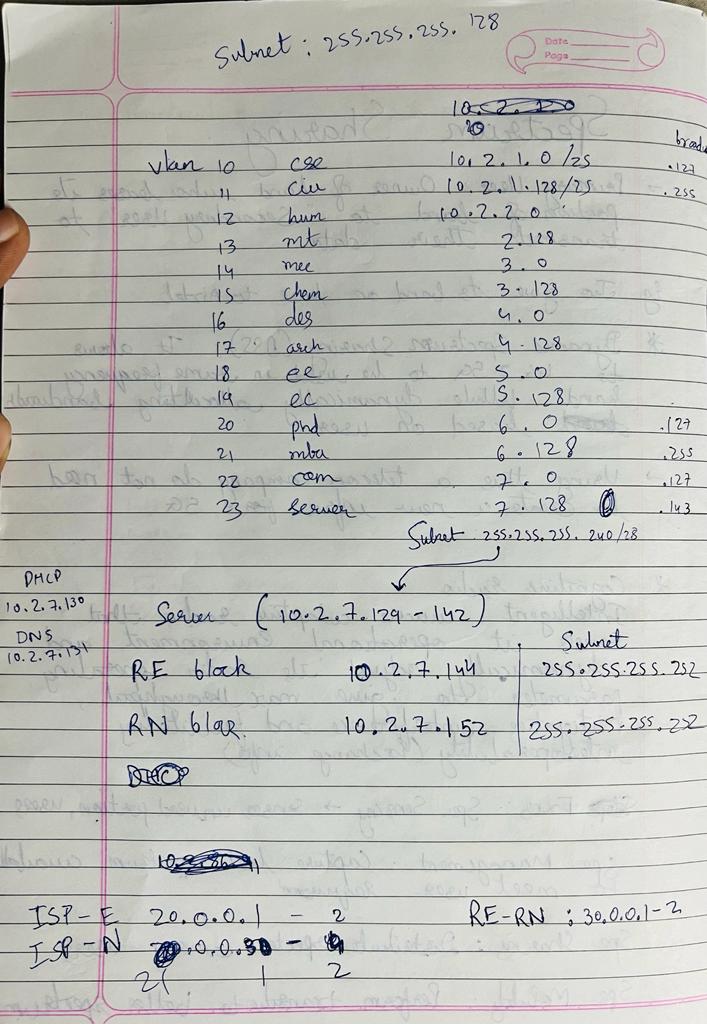 Subnet : 255.255.255.128
Date
Page
broad
vlan 10 cse 10.2.1.0/25 .127
11 civ 10.2.1.128/25 .255
12 hum 10.2.2.0
13 mt 2.128
14 mec 3.0
15 chem 3.128
16 des 4.0
17 arch 4.128
18 ee 5.0
19 ec 5.128
20 phd 6.0 .127
21 mba 6.128 .255
22 com 7.0 .127
23 server 7.128 .143
Subnet 255.255.255.240/28
DHCP
10.2.7.130
DNS
10.2.7.131
Server (10.2.7.129 - 142)
Subnet
RE block 10.2.7.144 255.255.255.252
RN 10.2.7.152 255.255.255.252
ISP-E 20.0.0.1 - 2 RE-RN : 30.0.0.1-2
ISP-N .0.0. -
21 1 2